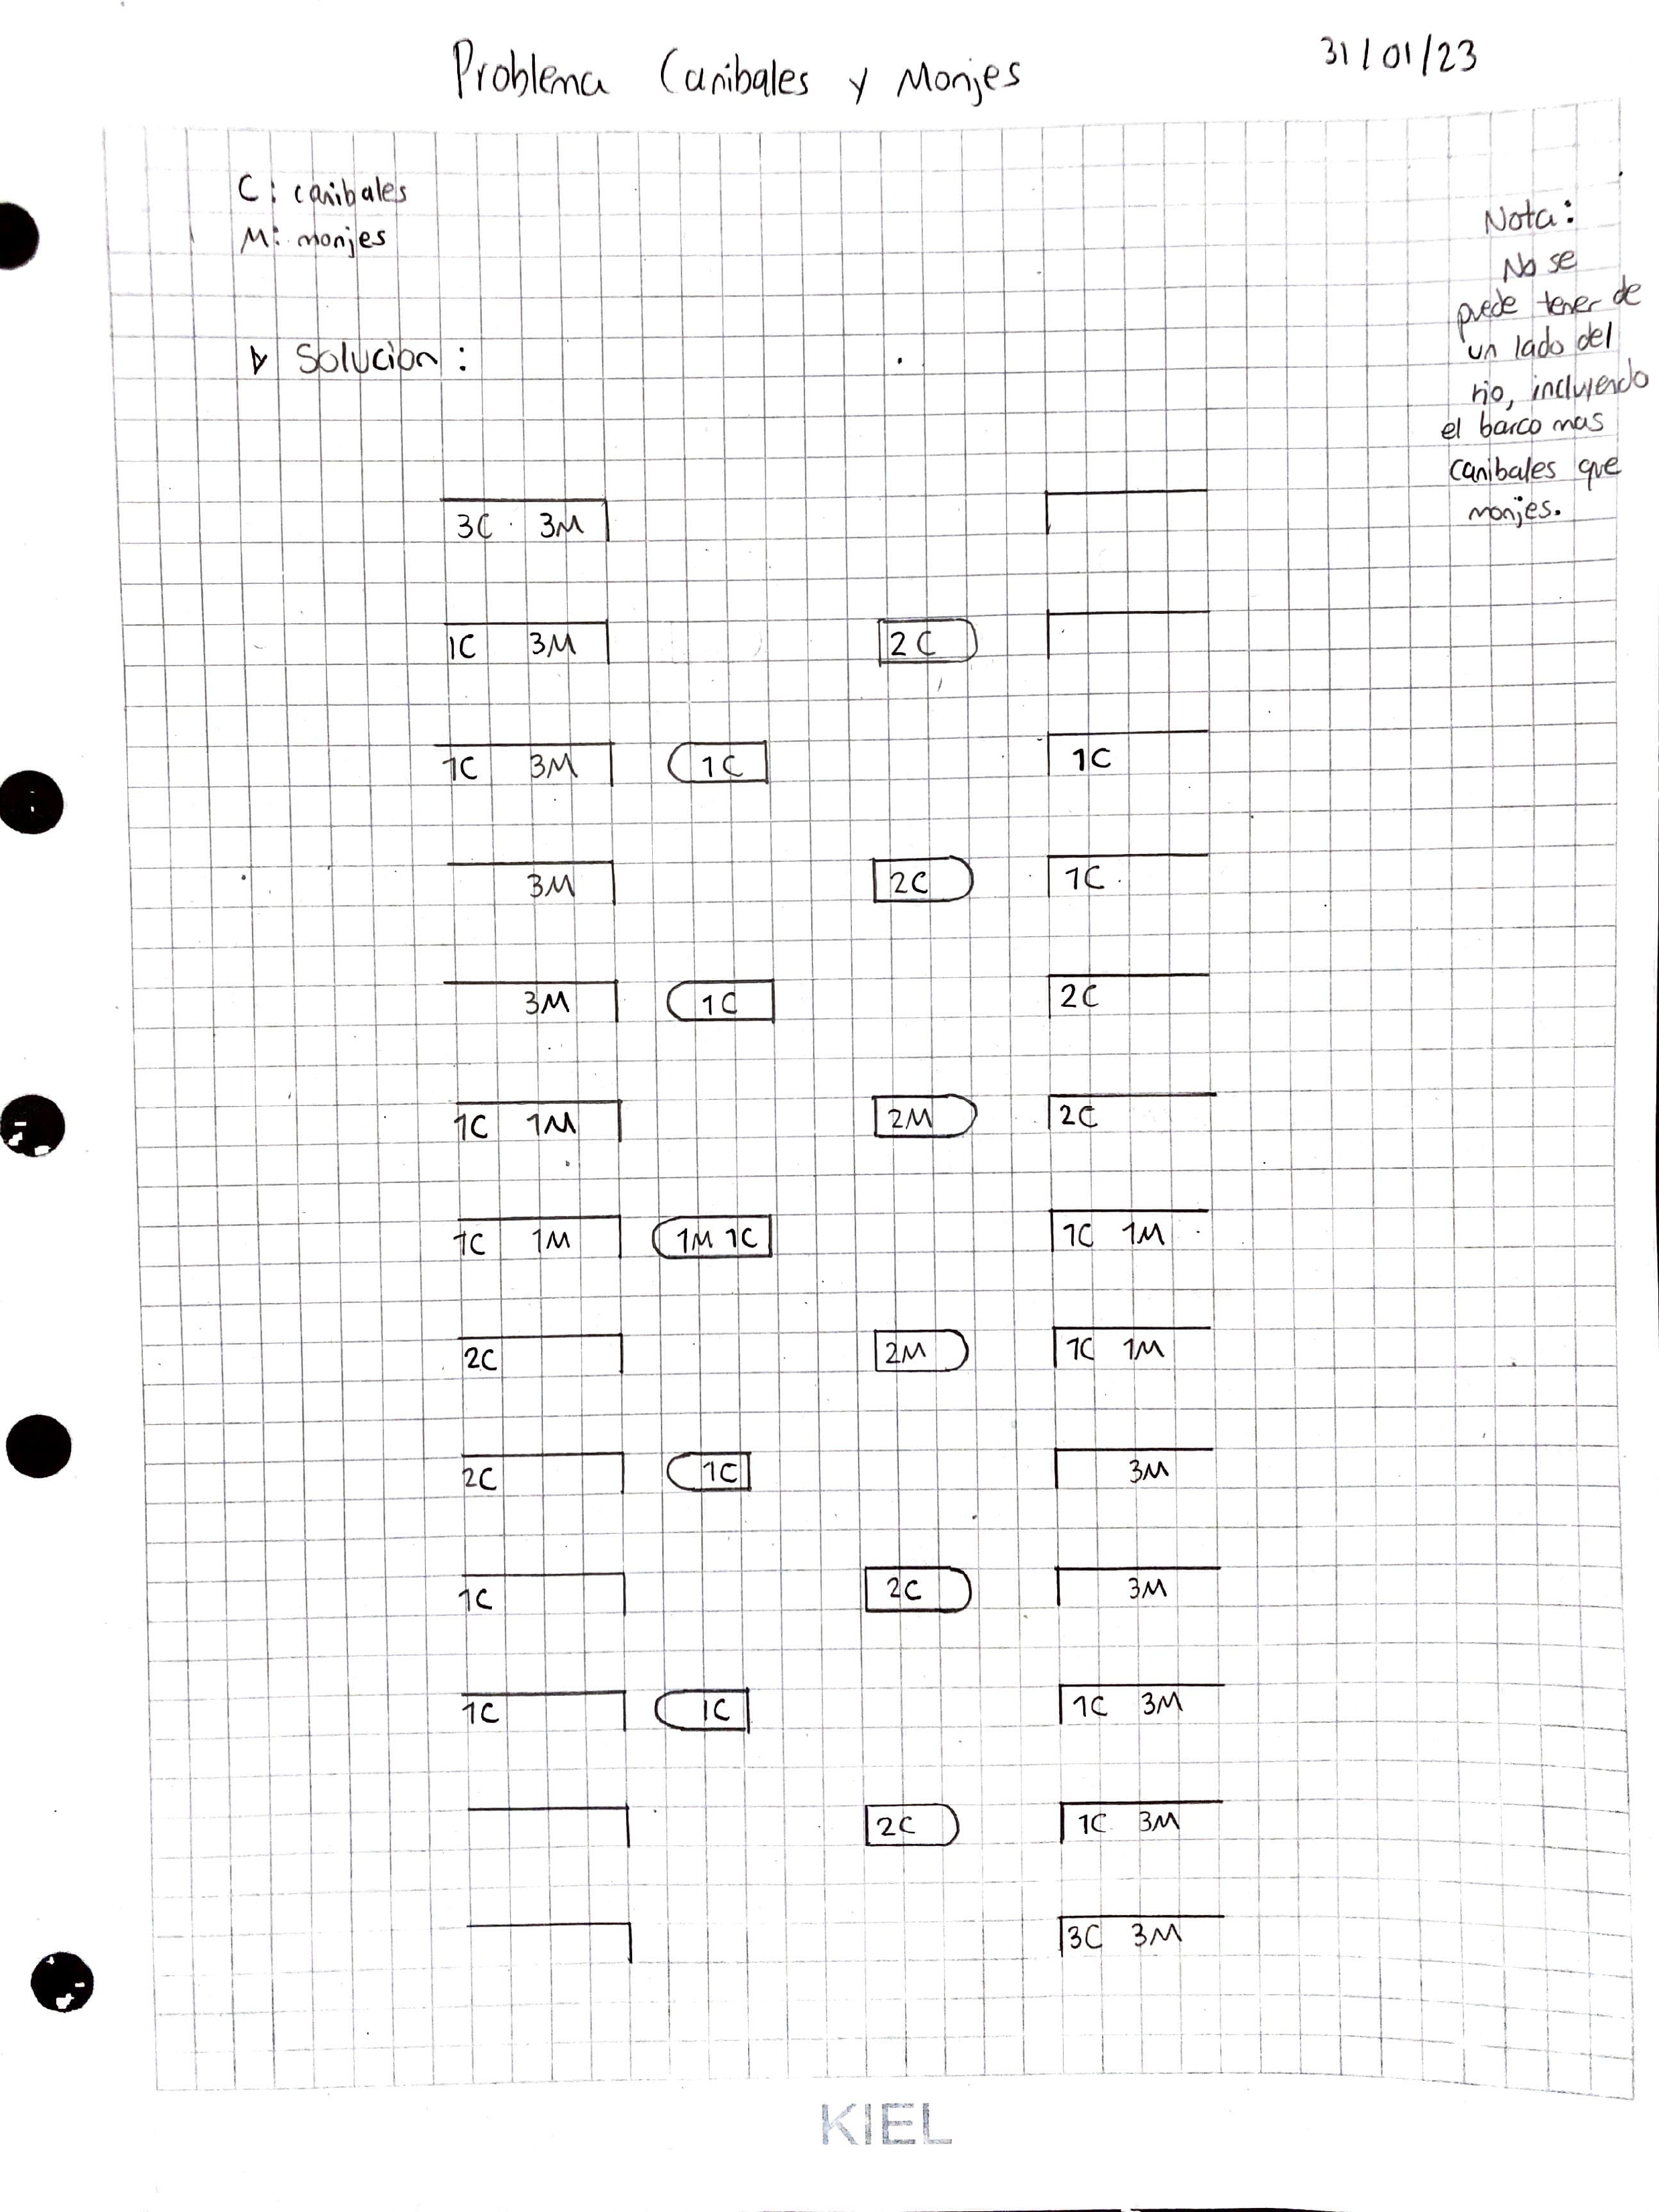 Problema Canibales y Monjes
31/01/23
C: canibales
M: monjes
Nota:
No se
puede tener de
un lado del
rio, incluyendo
el barco mas
canibales que
monjes.
Solucion:
3C 3M
1C 3M 2C
1C 3M 1C 1C
3M 2C 1C
3M 1C 2C
1C 1M 2M 2C
1C 1M 1M 1C 1C 1M
2C 2M 1C 1M
2C 1C 3M
1C 2C 3M
1C 1C 1C 3M
2C 1C 3M
3C 3M
KIEL